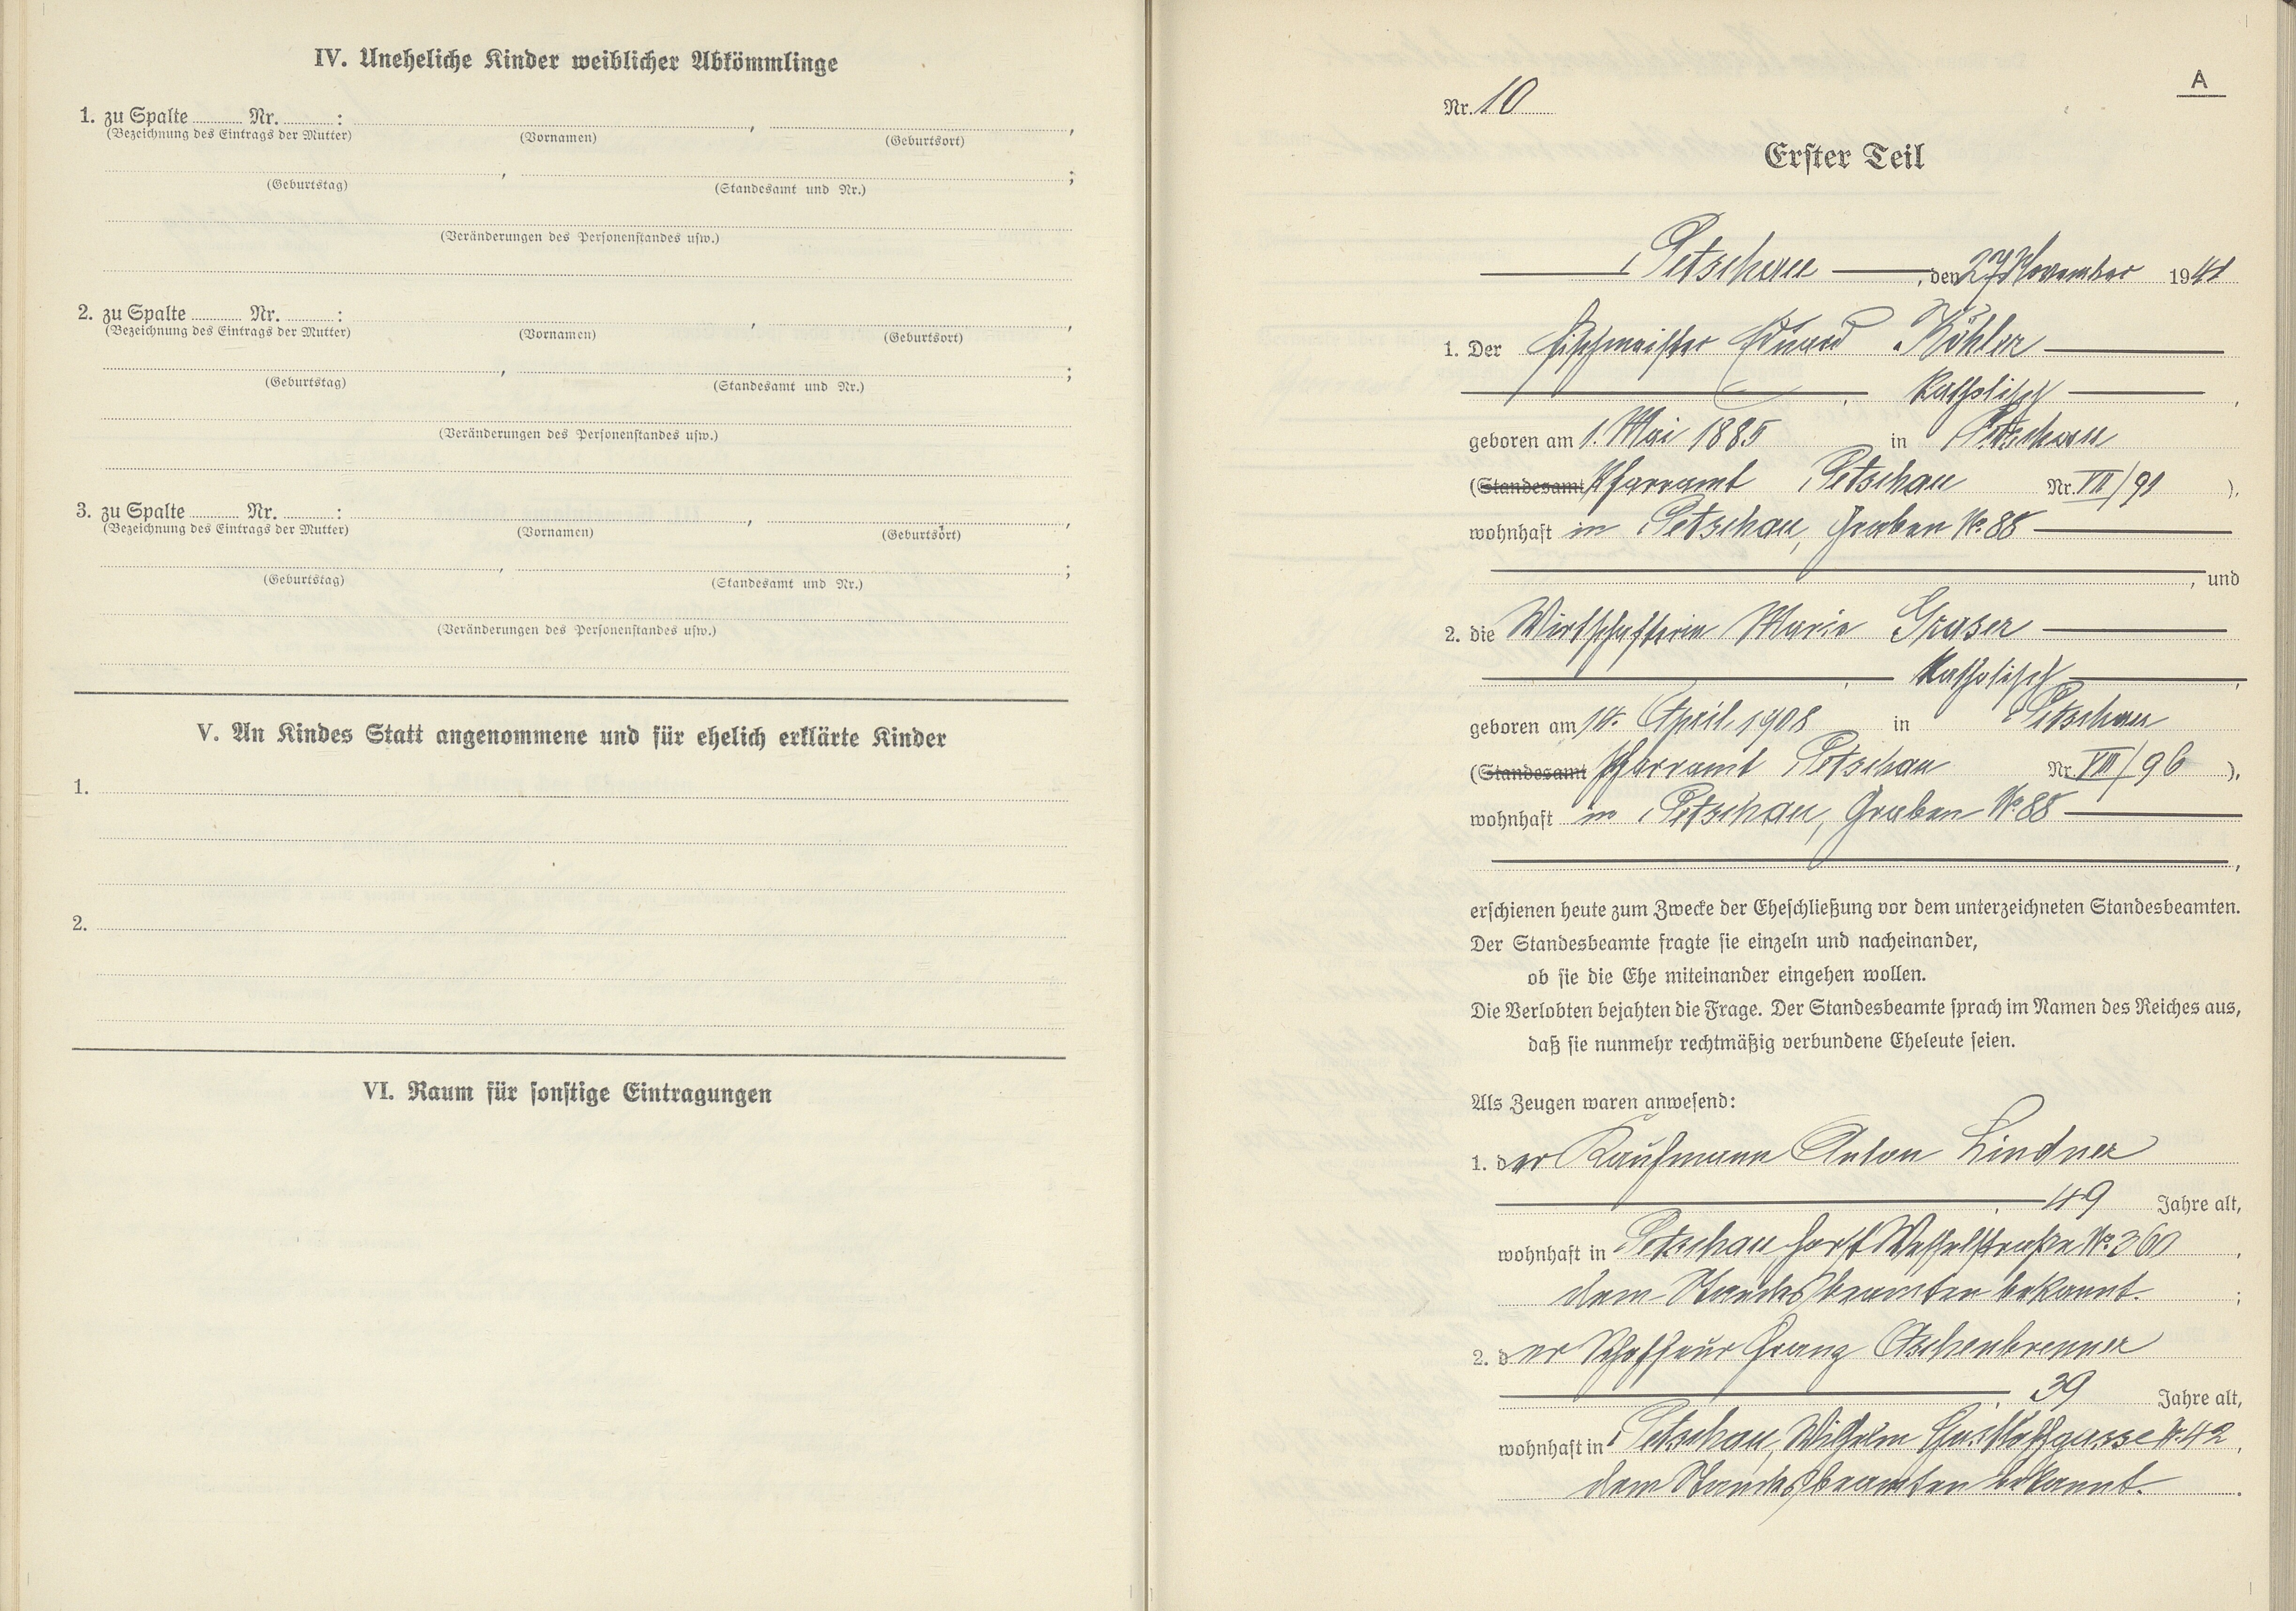 IV. Uneheliche Kinder weiblicher Abkömmlinge
1. zu Spalte ........ Nr. ........ :
(Bezeichnung des Eintrags der Mutter) (Vornamen) , (Geburtsort) ,
(Geburtstag) , (Standesamt und Nr.) ;
(Veränderungen des Personenstandes usw.)
2. zu Spalte ........ Nr. ........ :
(Bezeichnung des Eintrags der Mutter) (Vornamen) , (Geburtsort) ,
(Geburtstag) , (Standesamt und Nr.) ;
(Veränderungen des Personenstandes usw.)
3. zu Spalte ........ Nr. ........ :
(Bezeichnung des Eintrags der Mutter) (Vornamen) , (Geburtsort) ,
(Geburtstag) , (Standesamt und Nr.) ;
(Veränderungen des Personenstandes usw.)
V. An Kindes Statt angenommene und für ehelich erklärte Kinder
1.
2.
VI. Raum für sonstige Eintragungen
A
Nr. 10
Erster Teil
Petschau, den 27 November 1941
1. Der Fischmeister Eduard Köhler
, katholisch ,
geboren am 1. Mai 1885 in Petschau
(Standesamt Pfarramt Petschau Nr. VII/91 ),
wohnhaft in Petschau, Graben No. 88
, und
2. die Wirtschafterin Marie Graser
, katholisch ,
geboren am 14. April 1908 in Petschau
(Standesamt Pfarramt Petschau Nr. VIII/96 ),
wohnhaft in Petschau, Graben No. 88
,
erschienen heute zum Zwecke der Eheschließung vor dem unterzeichneten Standesbeamten.
Der Standesbeamte fragte sie einzeln und nacheinander,
ob sie die Ehe miteinander eingehen wollen.
Die Verlobten bejahten die Frage. Der Standesbeamte sprach im Namen des Reiches aus,
daß sie nunmehr rechtmäßig verbundene Eheleute seien.
Als Zeugen waren anwesend:
1. der Kaufmann Anton Lindner
, 49 Jahre alt,
wohnhaft in Petschau, Horst Wesselstraße No. 360 ,
dem Standesbeamten bekannt. ;
2. der Schoffeur Franz Aschenbrenner
, 39 Jahre alt,
wohnhaft in Petschau, Wilhelm Gustloffgasse N. 42 ,
dem Standesbeamten bekannt. .